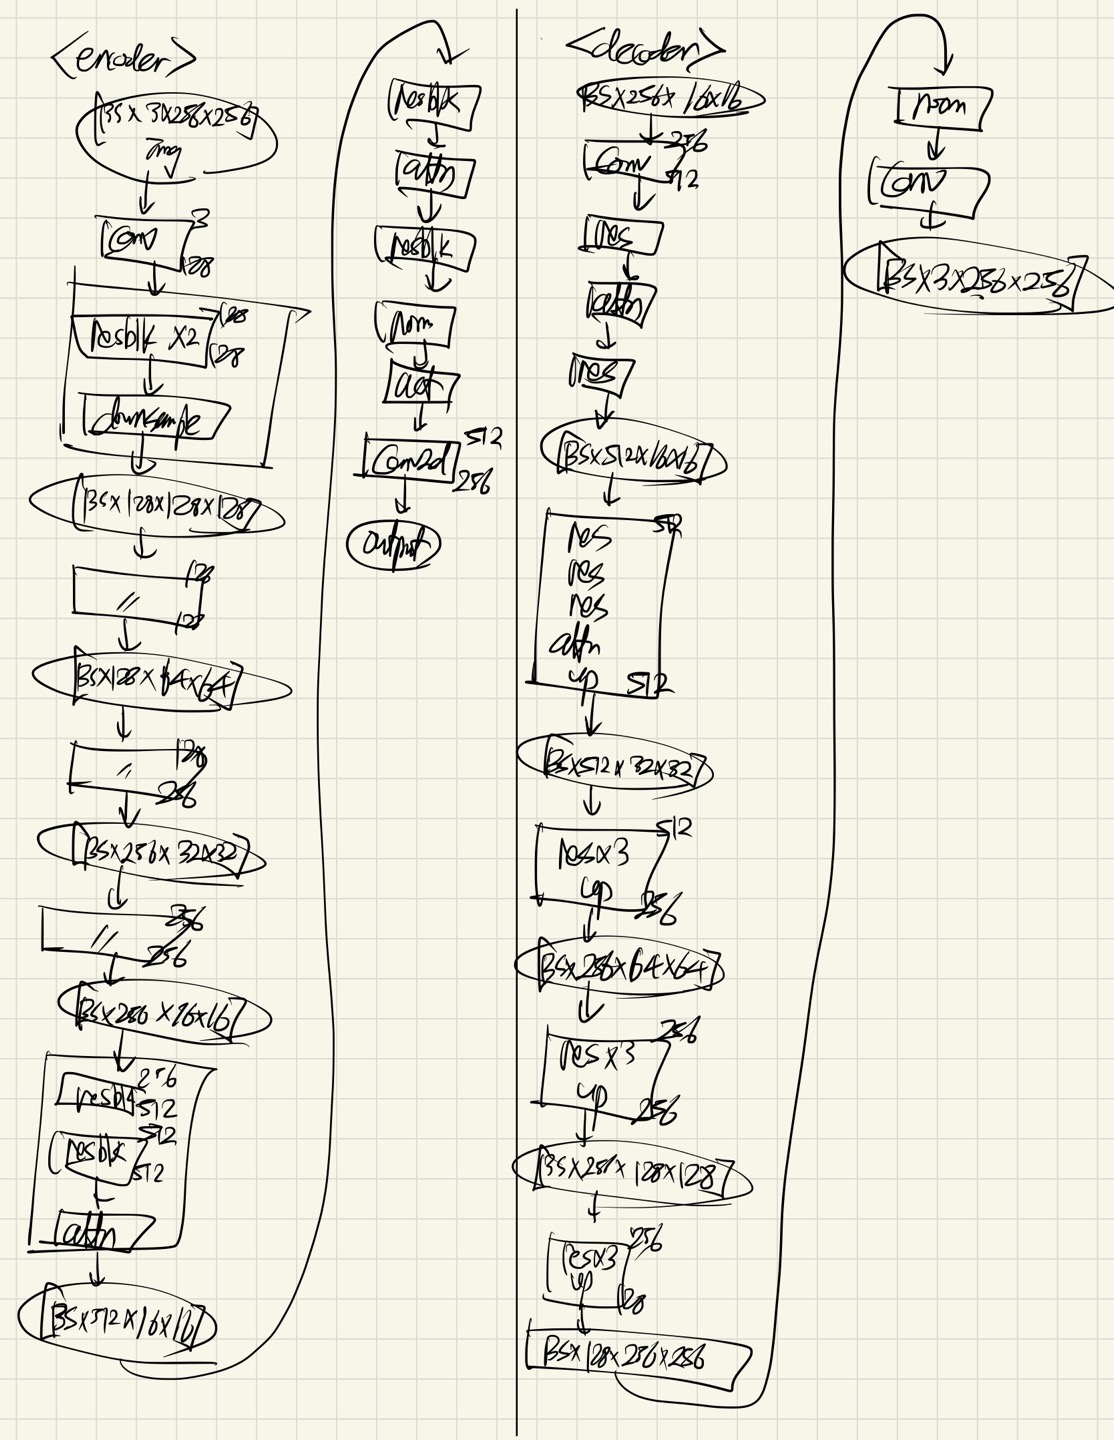 <encoder>
[BS×3×256×256]
img
conv
3
128
resblk ×2
128
128
downsample
[BS×128×128×128]
〃
128
128
[BS×128×64×64]
〃
128
256
[BS×256×32×32]
〃
256
256
[BS×256×16×16]
resblk
256
512
resblk
512
512
attn
[BS×512×16×16]
resblk
attn
resblk
norm
act
Conv2d
512
256
output
<decoder>
[BS×256×16×16]
Conv
256
512
res
attn
res
[BS×512×16×16]
512
res
res
res
attn
up
512
[BS×512×32×32]
512
res×3
up
256
[BS×256×64×64]
256
res×3
up
256
[BS×256×128×128]
256
res×3
up
128
BS×128×256×256
norm
Conv
[BS×3×256×256]